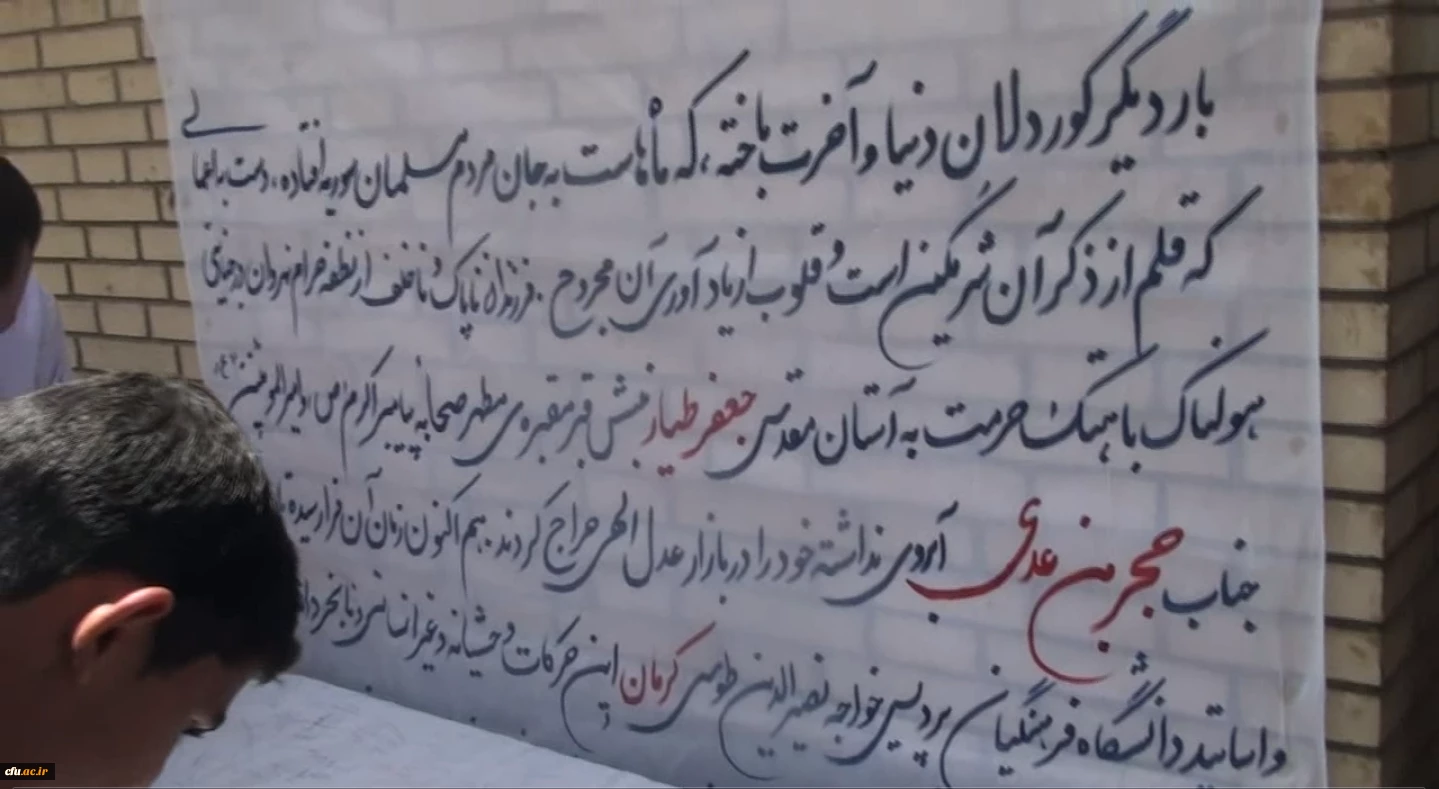 بار دیگر کوردلان دنیا و آخرت باخته، که ماهاست به جان مردم مسلمان سوریه افتاده، دست به اعمالی
که قلم از ذکر آن شرمگین است و قلوب از یادآوری آن مجروح. فرزندان ناپاک و ناخلف از نطفه حرام نهروان در جنایتی
هولناک با هتک حرمت به آستان مقدس جعفر طیار نبش قبر مقبره‌ی مطهر صحابه پیامبر اکرم ص و امیرالمومنین
جناب حجر بن عدی آبروی نداشته خود را در بازار عدل الهی حراج کردند. هم اکنون زمان آن فرا رسیده
و اساتید دانشگاه فرهنگیان پردیس خواجه نصیرالدین طوسی کرمان این حرکات وحشیانه و غیر انسانی
cfu.ac.ir